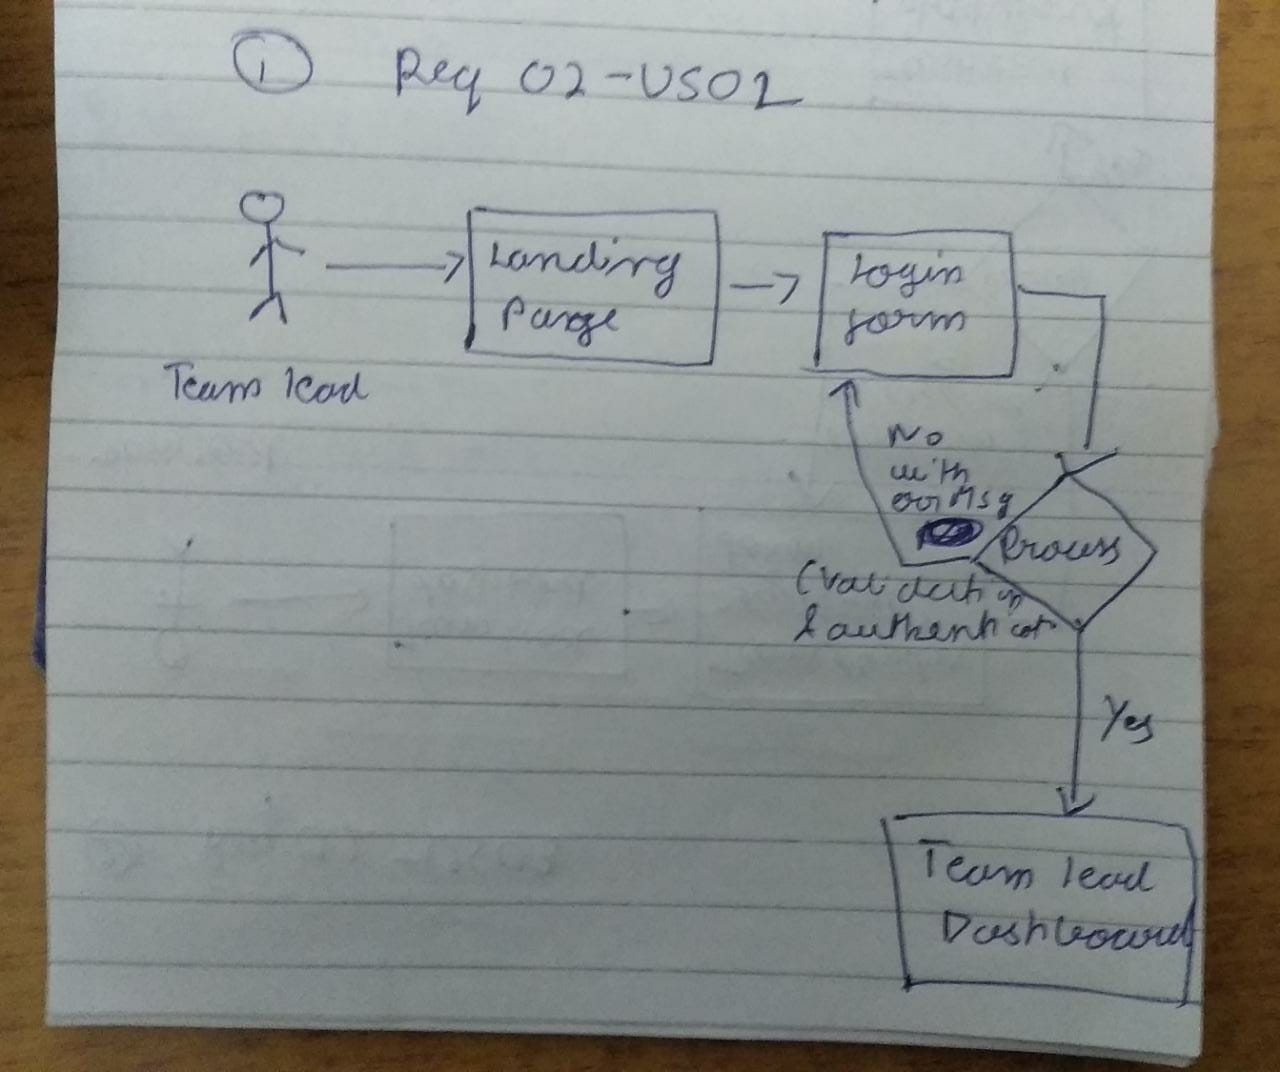 1
Req 02-US02
Landing
Page
Login
form
Team lead
No
with
err Msg
Process
(Validation
& authenticat
Yes
Team lead
Dashboard